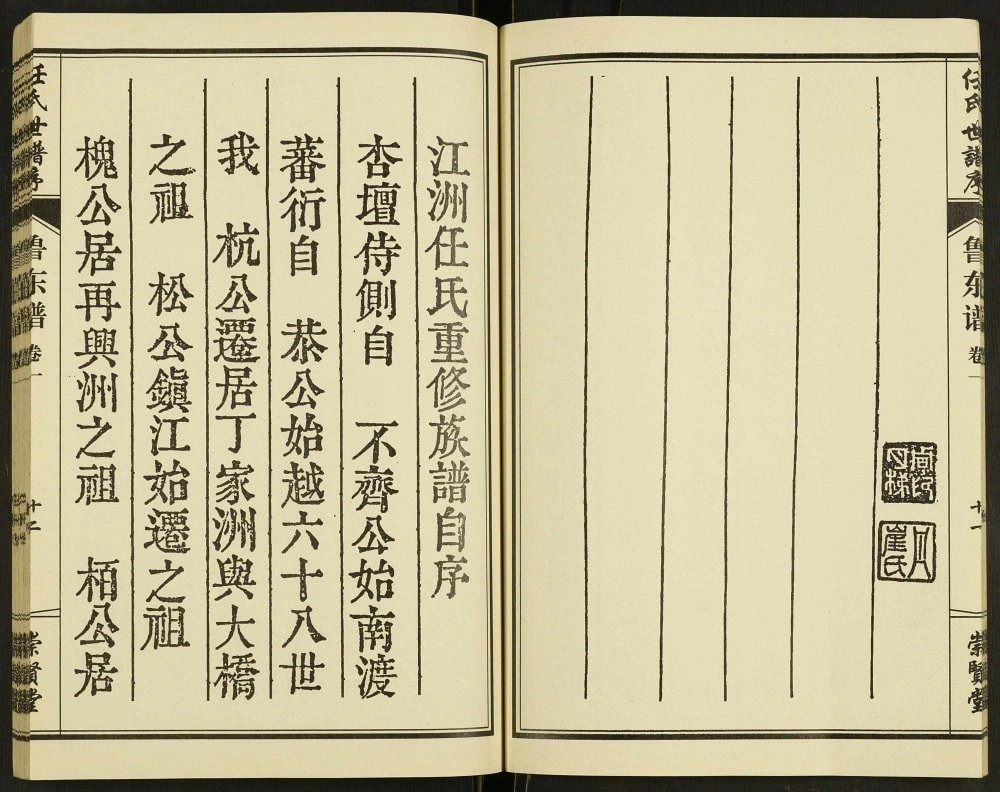 任氏世譜序
鲁东谱
卷一
十一
崇賢堂
江洲任氏重修族譜自序
杏壇侍側自 不齊公始南渡
蕃衍自 恭公始越六十八世
我 杭公遷居丁家洲與大橋
之祖 松公鎮江始遷之祖
槐公居再興洲之祖 栢公居
任氏世譜序
鲁东谱
卷一
十二
崇賢堂